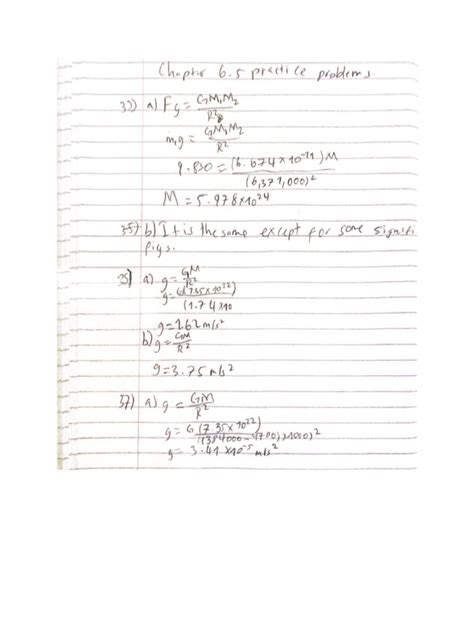 Chapter 6.5 practice problems
33) a) Fg = GM₁M₂/R²
m₁g = GM₁M₂/R²
9.830 = (6.674×10⁻¹¹)M/(6,371,000)²
M = 5.978×10²⁴
b) It is the same except for some signifi
figs.
35) a) g = GM/R²
g = G(7.35×10²²)/(1.74×10
g = 1.62 m/s²
b) g = GM/R²
g = 3.75 m/s²
37) a) g = GM/R²
g = G(7.35×10²²)/((384000-4700)×1000)²
g = 3.41×10⁻⁵ m/s²